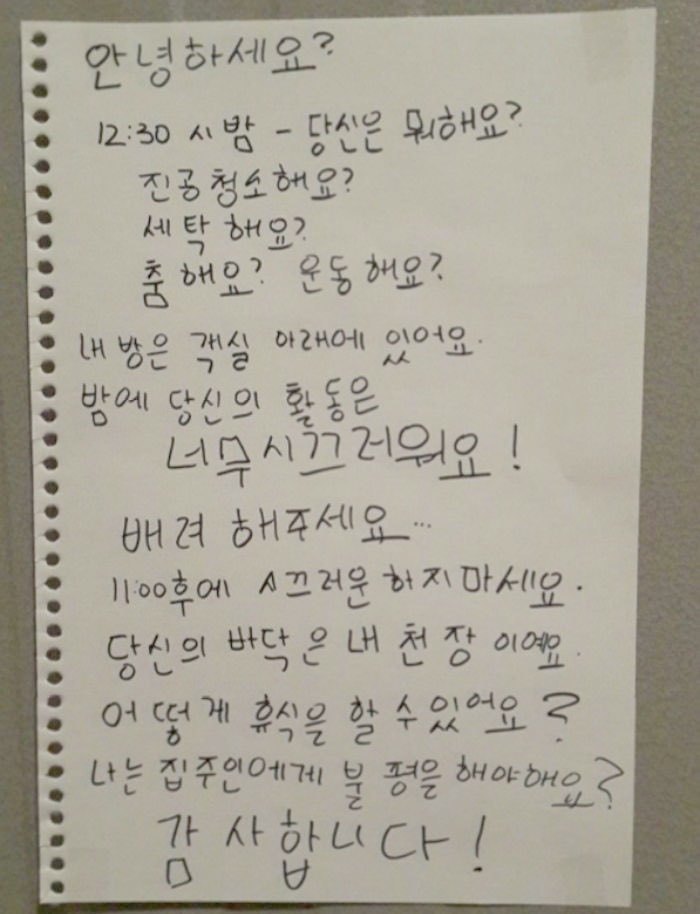 안녕하세요?
12:30 시 밤 - 당신은 뭐해요?
진공청소해요?
세탁해요?
춤해요? 운동해요?
내 방은 객실 아래에 있어요.
밤에 당신의 활동은
너무시끄러워요!
배려 해주세요...
11:00후에 시끄러운 하지마세요.
당신의 바닥은 내 천장 이예요.
어떻게 휴식을 할 수 있어요?
나는 집주인에게 불평을 해야해요?
감사합니다!